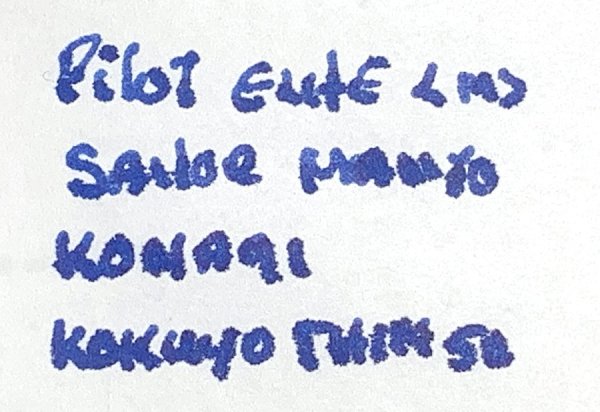 Pilot ELITE <M>
SAILOR MANYO
KONAGI
KOKUYO THIN